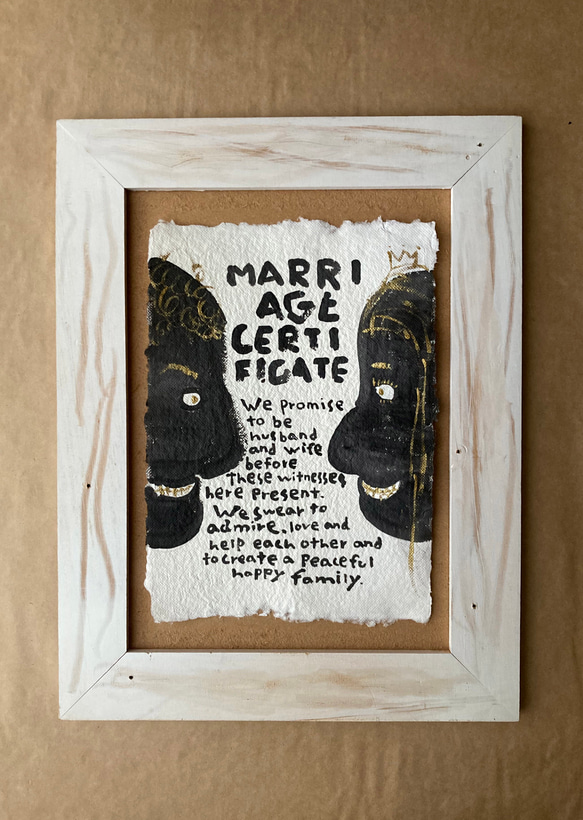 MARRI
AGE
CERTI
FICATE
We promise
to be
husband
and wife
before
these witnesses
here present.
We swear to
admire, love and
help each other and
to create a peaceful
happy family.